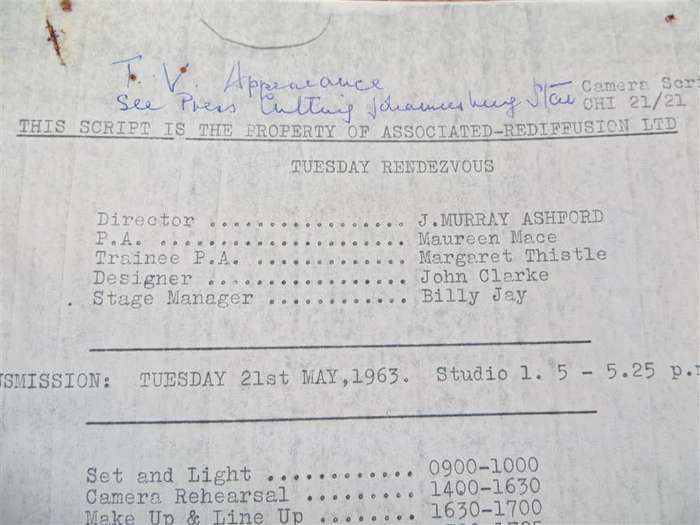 T. V. Appearance
See Press Cutting Johannesburg Star
Camera Scri
CHI 21/21
THIS SCRIPT IS THE PROPERTY OF ASSOCIATED-REDIFFUSION LTD
TUESDAY RENDEZVOUS
Director .................. J.MURRAY ASHFORD
P.A. ...................... Maureen Mace
Trainee P.A. .............. Margaret Thistle
Designer .................. John Clarke
Stage Manager ............. Billy Jay
NSMISSION: TUESDAY 21st MAY,1963. Studio 1. 5 - 5.25 p.m
Set and Light ............. 0900-1000
Camera Rehearsal .......... 1400-1630
Make Up & Line Up ......... 1630-1700